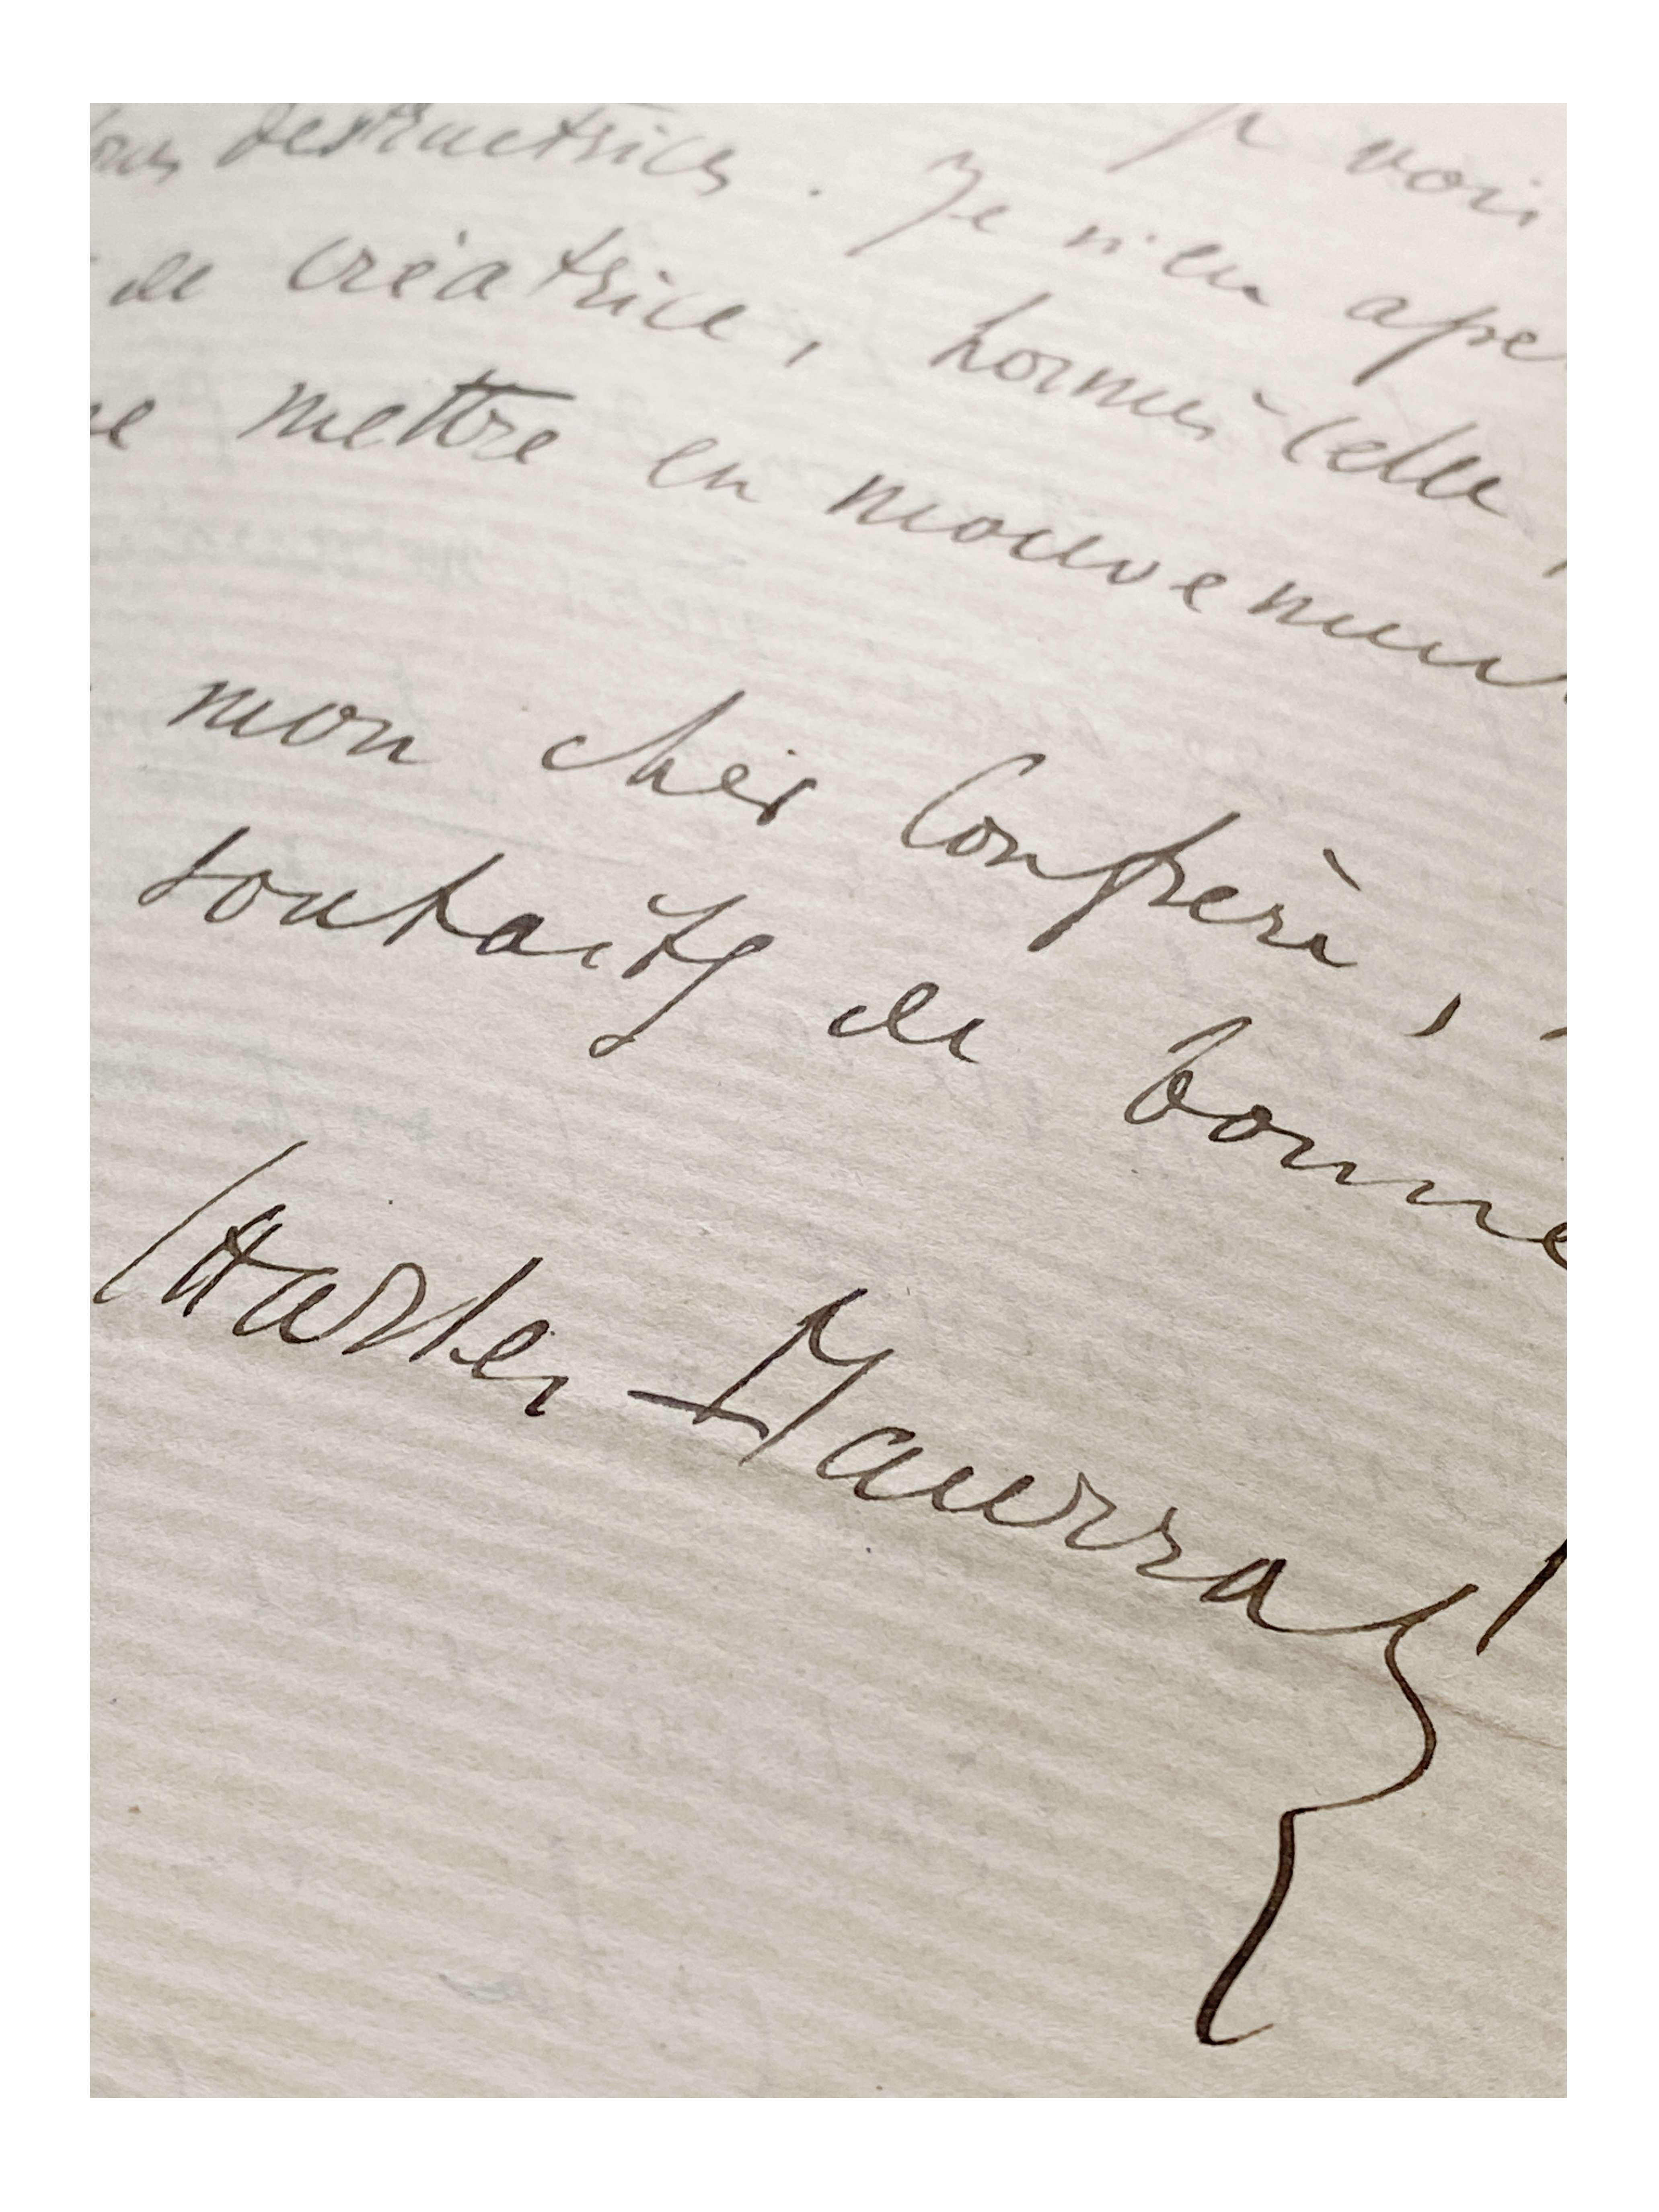 je vois
destructrices. Je n'en ape
de créatrice, hormis celle
mettre en mouvement
mon cher Confrère,
souhaits de bonne
Charles Maurras